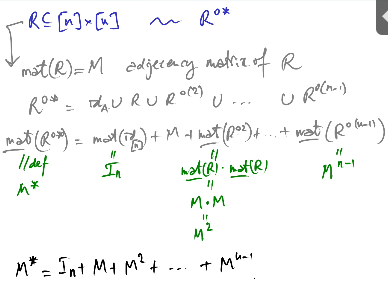 R ⊆ [n]×[n] ~ R^{o*}
mat(R) = M adjecency matrix of R
R^{o*} = id_A ∪ R ∪ R^{o(2)} ∪ ... ∪ R^{o(n-1)}
mat(R^{o*}) = mat(id_{[n]}) + M + mat(R^{o2}) + ... + mat(R^{o(n-1)})
|| def || || ||
M* I_n mat(R) · mat(R) M^{n-1}
||
M · M
||
M^2
M* = I_n + M + M^2 + ... + M^{n-1}